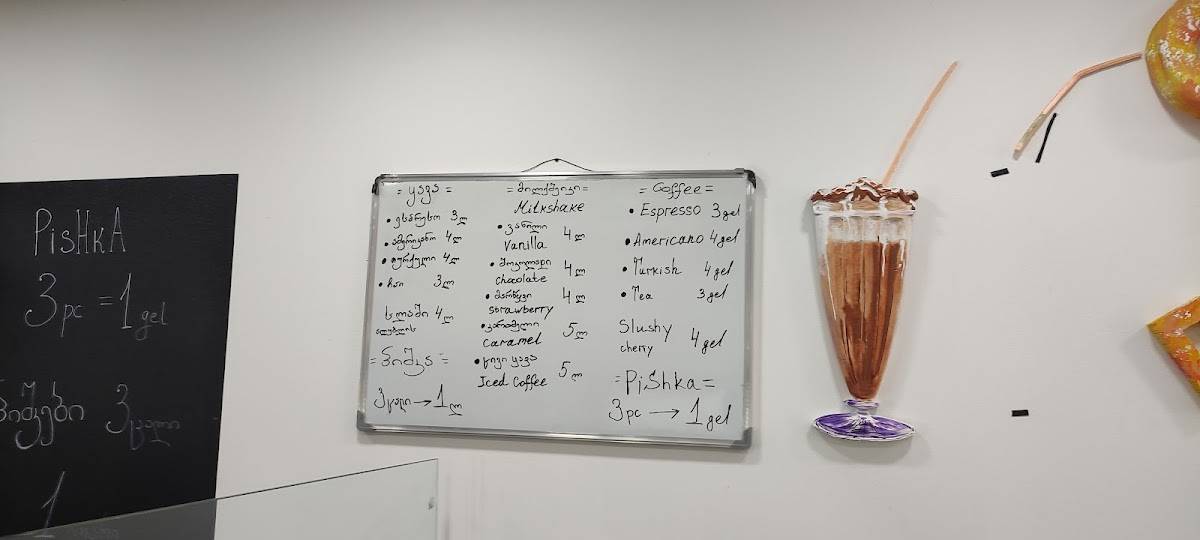 PisHKA
3 pc = 1 gel
პიშკები 3 ცალი
1
= ყავა =
• ესპრესო 3ლ
• ამერიკანო 4ლ
• თურქული 4ლ
• ჩაი 3ლ
სლაში 4ლ
ალუბლის
= პიშკა =
3 ცალი → 1ლ
= მილქშეიკი =
Milkshake
• ვანილი 4ლ
Vanilla
• შოკოლადი 4ლ
chocolate
• მარწყვი 4ლ
strawberry
• კარამელი 5ლ
Caramel
• ცივი ყავა 5ლ
Iced Coffee
= Coffee =
• Espresso 3gel
• Americano 4gel
• Turkish 4gel
• Tea 3gel
Slushy 4gel
cherry
= PiShka =
3pc → 1 gel